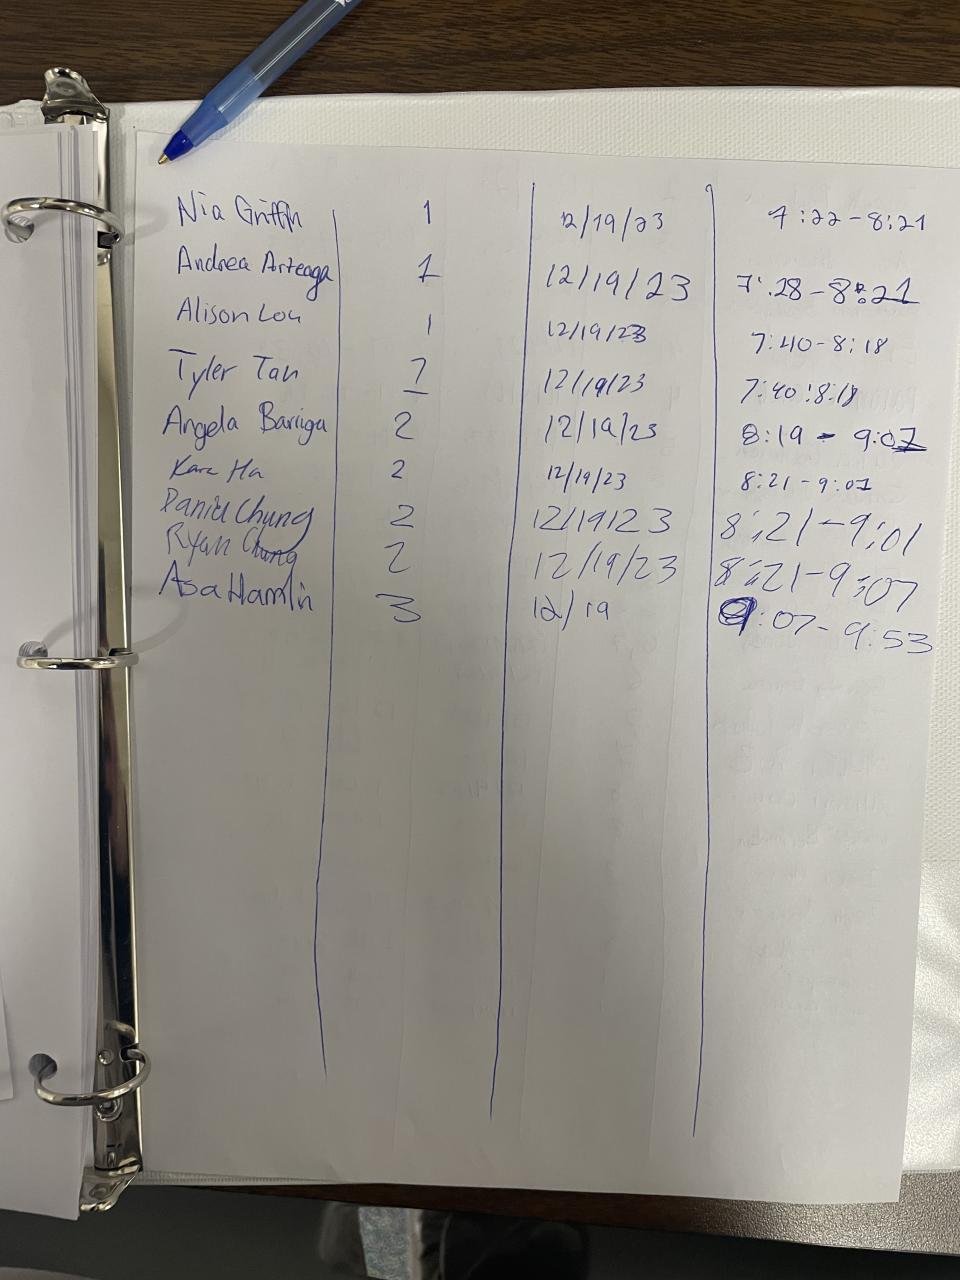 Nia Griffin 1 12/19/23 7:22-8:21
Andrea Arteaga 1 12/19/23 7:28-8:21
Alison Lou 1 12/19/23 7:40-8:18
Tyler Tan 1 12/19/23 7:40-8:18
Angela Barriga 2 12/19/23 8:19 - 9:07
Ha 2 12/19/23 8:21-9:07
Daniel Chung 2 12/19/23 8:21-9:01
Ryan Chung 2 12/19/23 8:21-9:07
Asa Hamlin 3 12/19 9:07-9:53